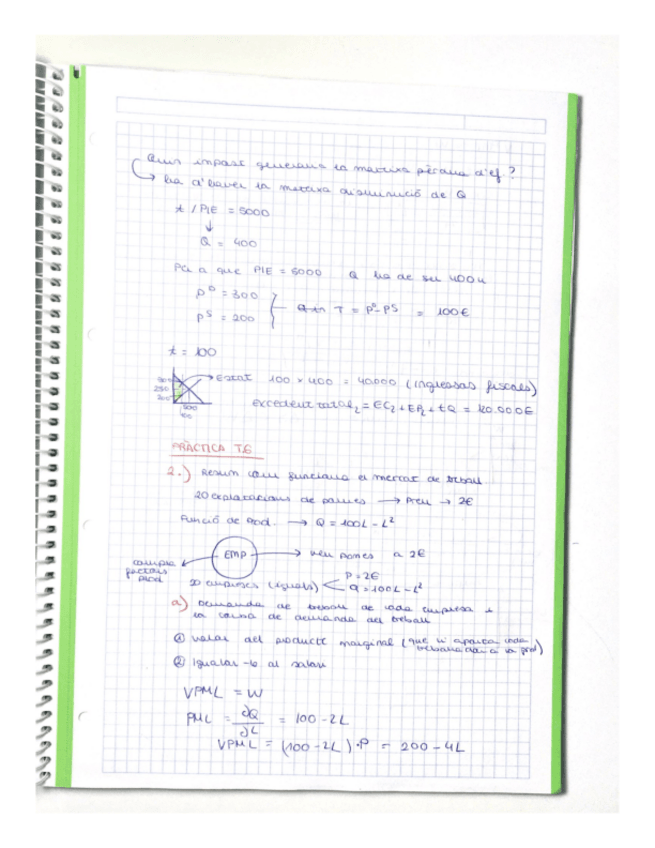 Quin impost generaria la mateixa pèrdua d'ef.?
→ ha d'haver la mateixa disminució de Q
t / PIE = 5000
↓
Q = 400
Per a que PIE = 5000 Q ha de ser 400u
P^D = 300
P^S = 200
T = P^D - P^S = 100€
t = 100
→ Estat 100 x 400 = 40000 (ingressos fiscals)
excedent total₂ = EC₂ + EP₂ + tQ =
PRÀCTICA T.6
2.) Resum com funciona el mercat de treball
20 explotacions de pomes → Preu → 2€
Funció de Prod. → Q = 100L - L²
compra factors prod
EMP → ven pomes a 2€
20 empreses (iguals)
P = 2€
Q = 100L - L²
a) Demanda de treball de cada empresa i
la corba de demanda del treball
① Valor del producte marginal (que li aporta cada
treballador a la prod)
② Igualar-lo al salari
VPML = W
PML = ∂Q/∂L = 100 - 2L
VPML = (100 - 2L)·P = 200 - 4L